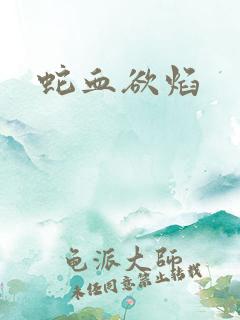 蛇血欲焰
龟派大师
未经同意禁止转载